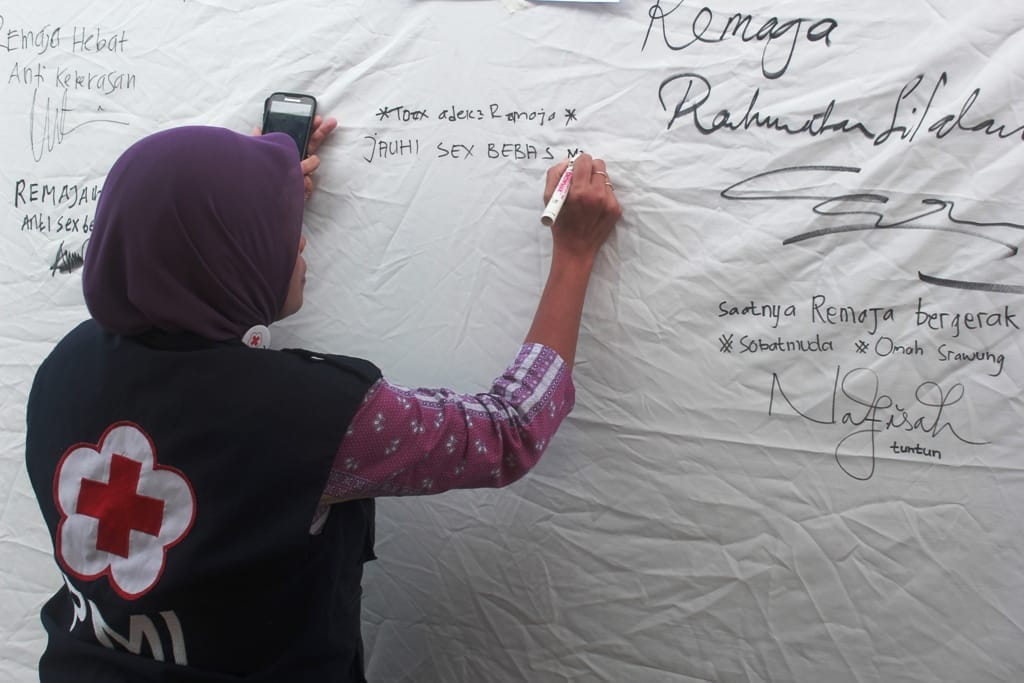 Remaja Hebat
Anti Kekerasan
REMAJA
Anti sex be
*Toax adek2 Remaja*
JAUHI SEX BEBAS
Remaga
Rahmatan
Saatnya Remaja bergerak
* Sobatmuda * Omah Srawung
Nafisah
tuntun
PMI